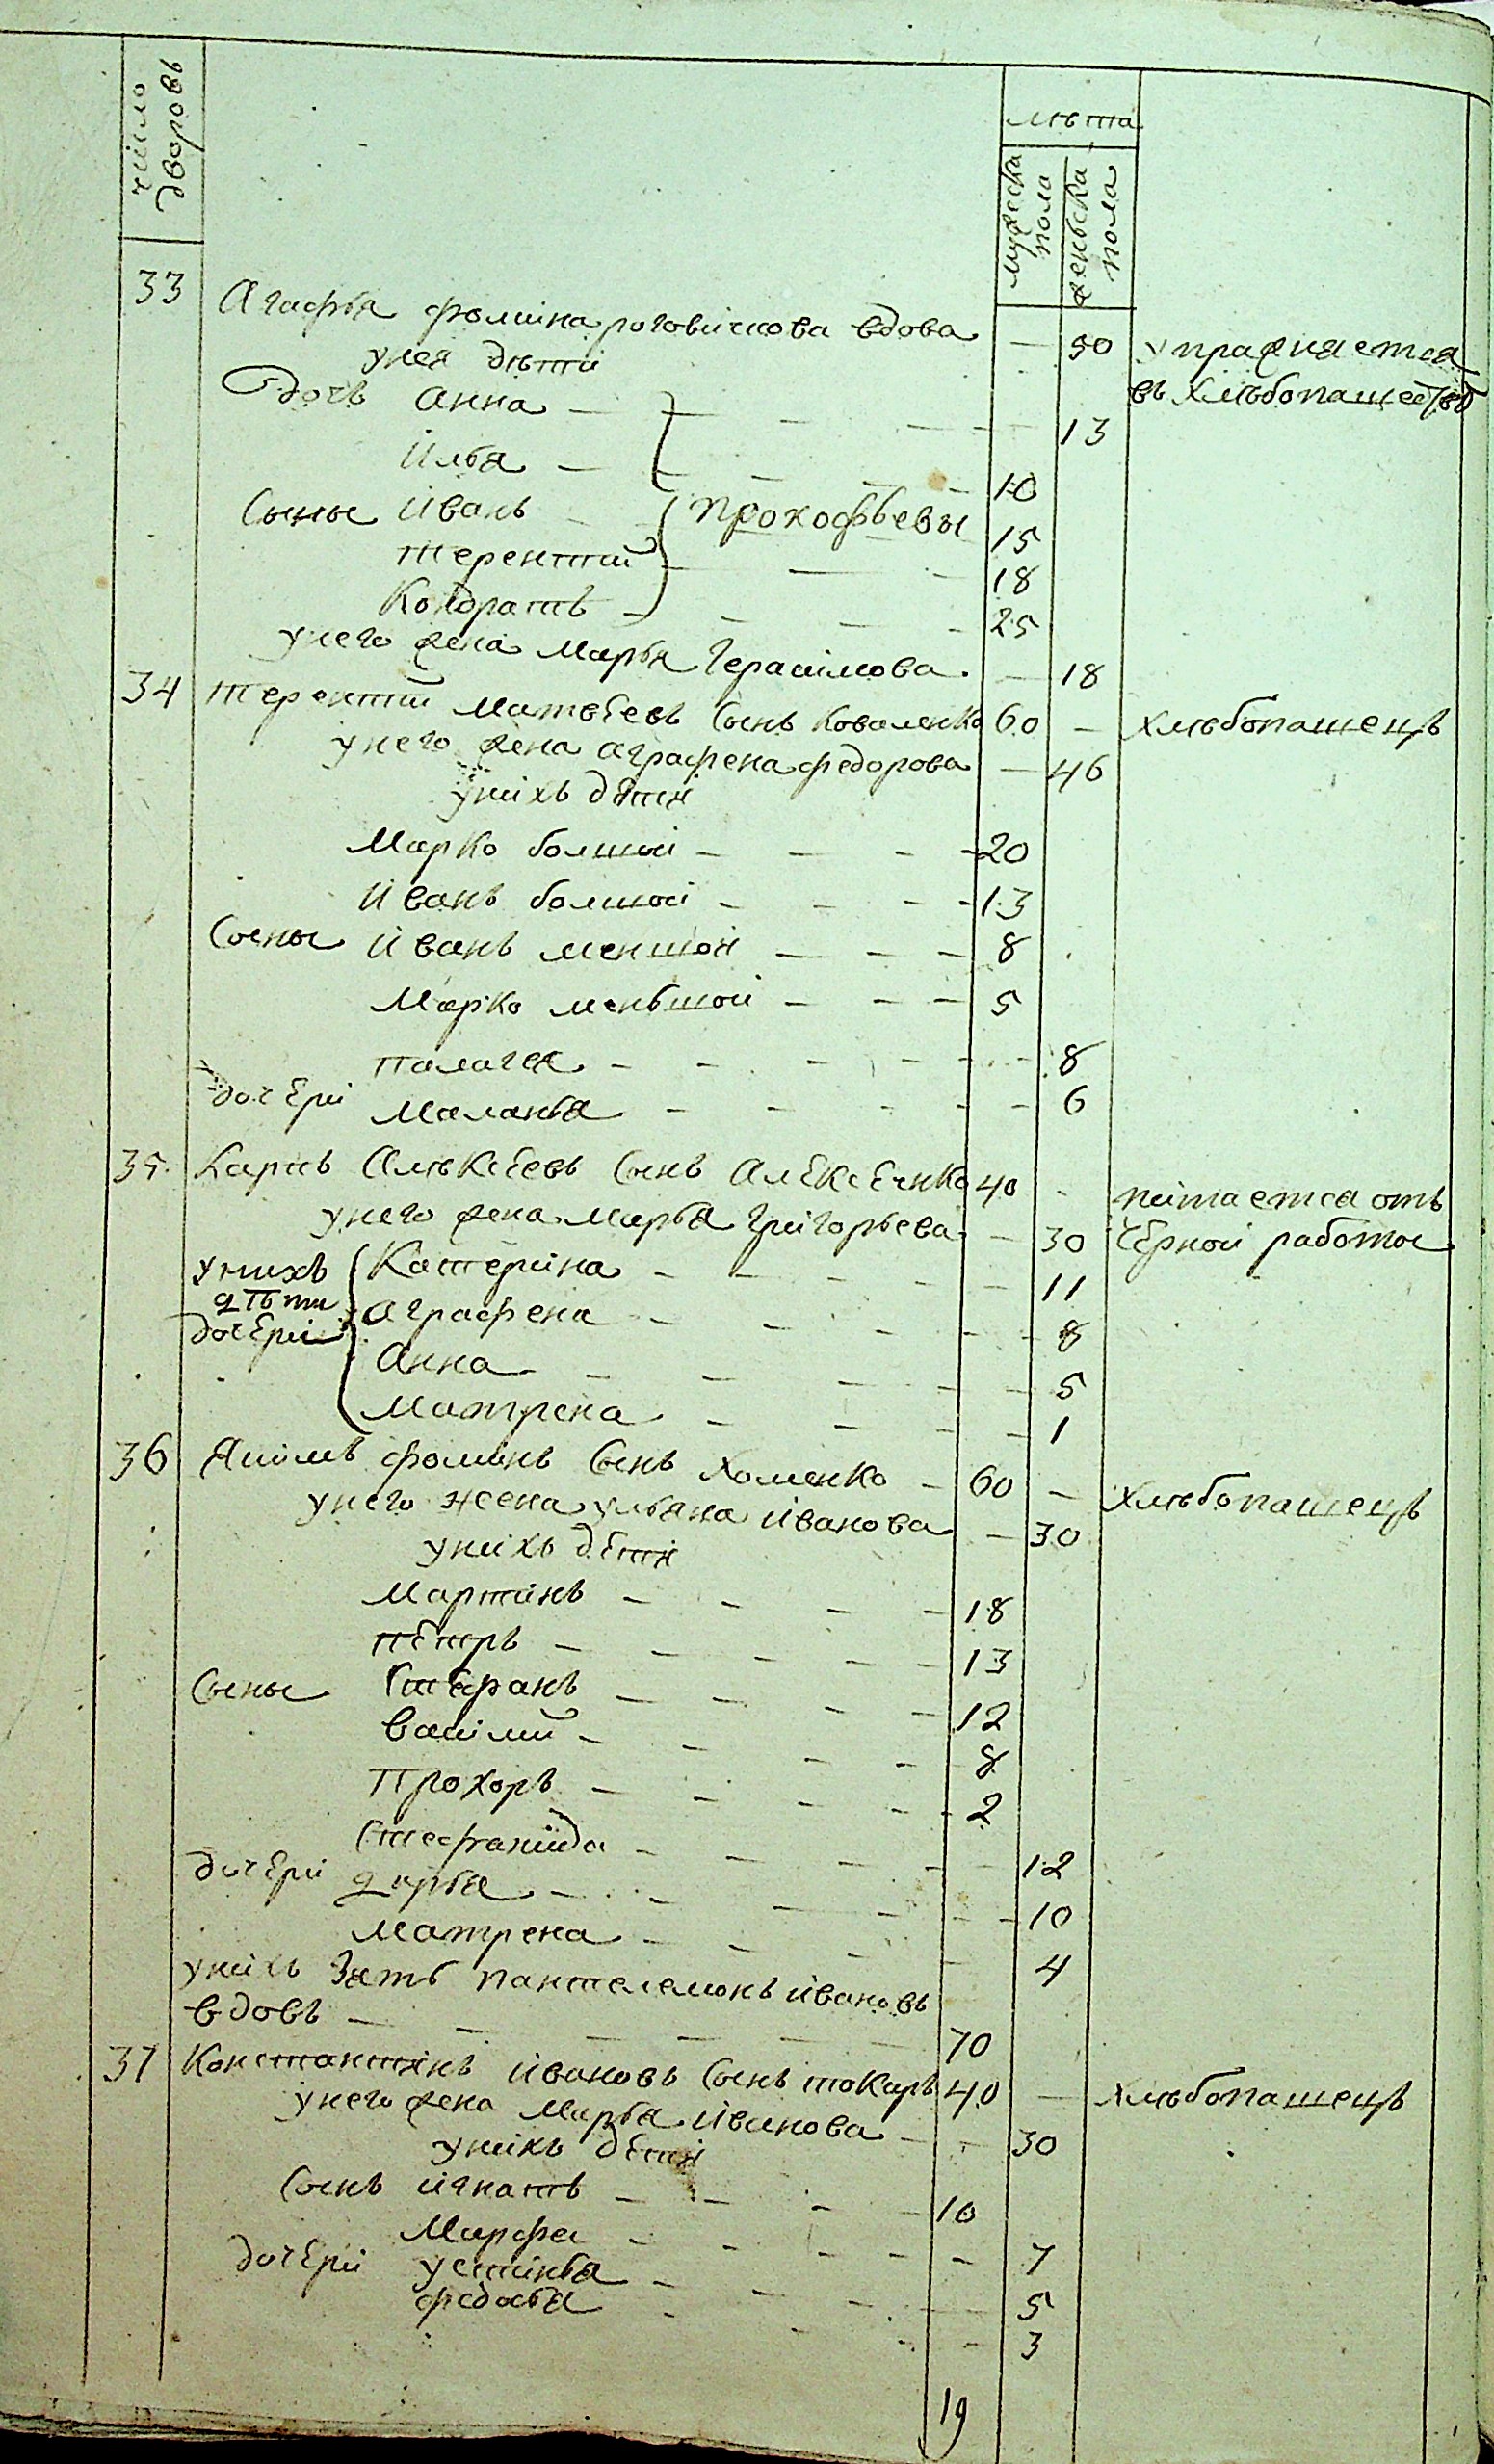 число дворовъ
лѣта
мужеска пола
женьска пола
33 Агафья Фомина роговичкова вдова — 50 упражняется
унея дѣти въ хлѣбопашествѣ
дочь Анна — 13
Илья — 10
Сыны Иванъ Прокофьевы 15
терентий — 18
Кондратъ — 25
унего жена Марья Герасимова — 18
34 терентий Матвеевъ Сынъ Коваленко 60 — хлѣбопашецъ
унего жена аграфена федорова — 46
унихъ дѣти
Марко болшой — 20
Иванъ болшой — 13
Сыны Иванъ меншой — 8
Марко меньшой — 5
палагея — 8
дочери Маланья — 6
35 Карпъ Алѣксеевъ Сынъ Алексеенко 40 - питается отъ
унего жена Марья Григорьева — 30 черной работы
унихъ Катерина — 11
дѣти
дочери аграфена — 8
Анна — 5
Матрена — 1
36 Якимъ фоминъ Сынъ Хоменко — 60 — хлѣбопашецъ
унего жена ульяна Иванова — 30
унихъ дети
Мартинъ — 18
петръ — 13
Сыны Стефанъ — 12
васили — 8
Прохоръ — 2
Стефанида — 12
дочери дарья — 10
Матрена — 4
унихъ Зять пантелемонъ Ивановъ
вдовъ — 70
37 Константинъ Ивановъ Сынъ токарь 40 — хлѣбопашецъ
унего жена Марья Иванова — 30
унихъ дети
Сынъ Игнатъ — 10
Марфа — 7
дочери устинья — 5
федосья — 3
19